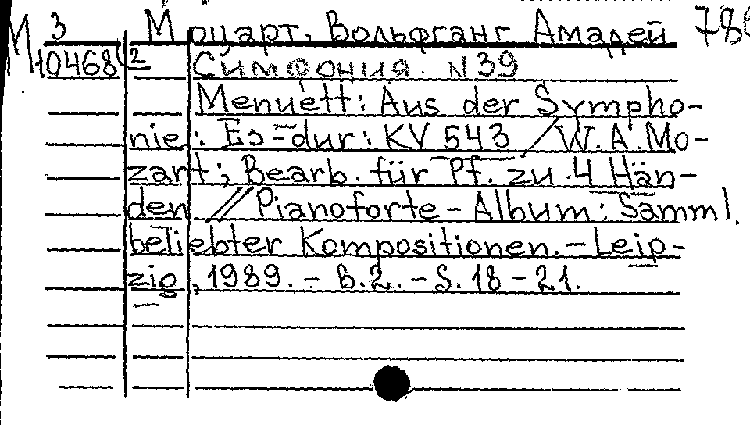 М 3 Моцарт, Вольфганг Амадей 78
10468 2 Симфония N 39
Menuett: Aus der Sympho-
nie: Es-dur: KV 543 / W. A. Mo-
zart; Bearb. für Pf. zu 4 Hän-
den // Pianoforte-Album: Samml.
beliebter Kompositionen.-Leip-
zig, 1989. - B.2. - S. 18-21.